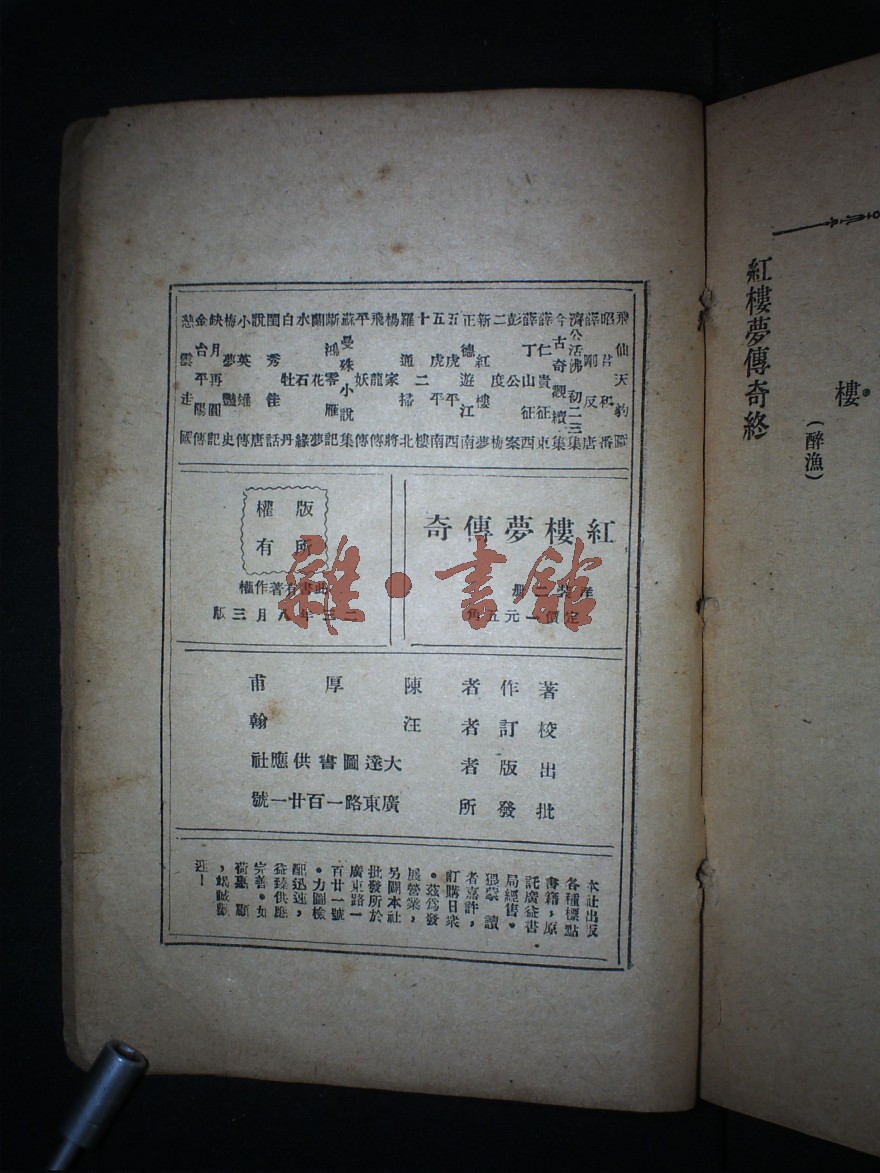 樓。
(醉漁)
紅樓夢傳奇終
飛仙天豹圖
昭君和番
薛剛反唐
濟公活佛初二三集
今古奇觀續集
薛仁貴征東
薛丁山征西
彭公案
二度梅
新紅樓夢
正德遊江南
五虎平西
五虎平南
十二樓
羅通掃北
楊家將
飛龍傳
平妖傳
蘇曼殊小說集
斷鴻零雁記
蘭花夢
水石緣
白牡丹
閨秀佳話
說唐
小英雄傳
梅夢豔史
缺月再圓記
金台平陽傳
慈雲走國
紅樓夢傳奇
洋裝二册
定價一元五角
版權所有
此書有著作權
二三年八月三版
著作者 陳厚甫
校訂者 汪翰
出版者 大達圖書供應社
批發所 廣東路一百廿一號
本社出版
各種標點
書籍,原
託廣益書
局經售。
猥蒙讀
者嘉許,
訂購日衆
。茲爲發
展營業,
另闢本社
批發所於
廣東路一
百廿一號
。力圖檢
配迅速,
益臻供應
完善。如
荷惠顧
,竭誠歡
迎!
雜·書館